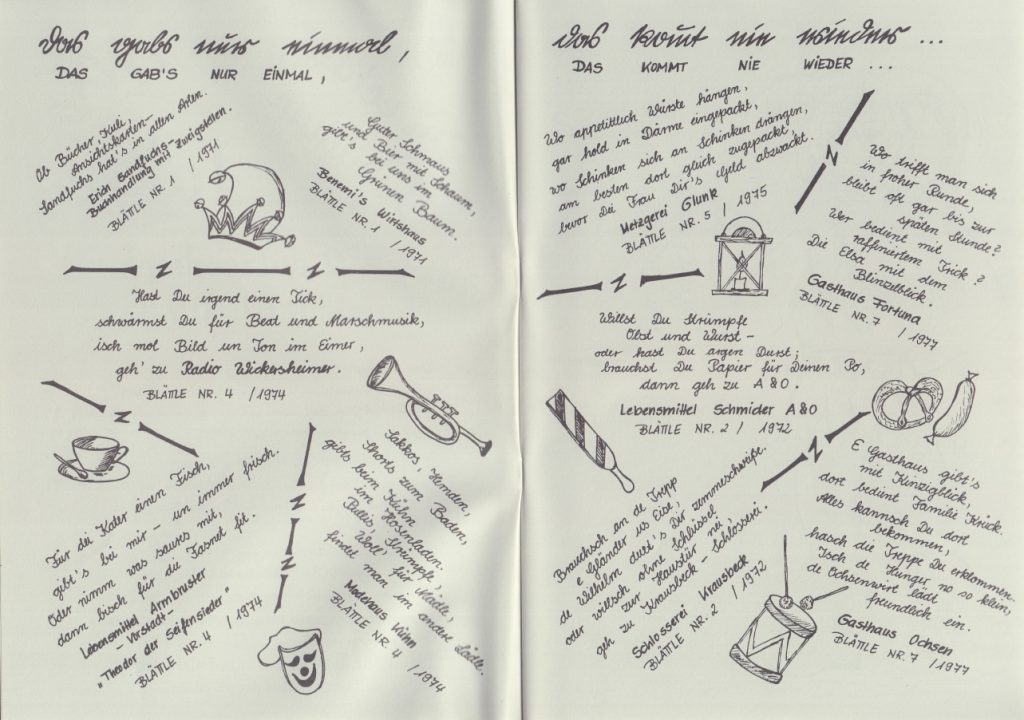 das gabs nur einmal,
DAS GAB'S NUR EINMAL,
Ob Bücher, Kuli,
Ansichtskarten –
Sandfuchs hat's in allen Arten.
Erich Sandfuchs –
Buchhandlung mit Zweigstellen.
BLÄTTLE NR. 1 / 1971
Guter Schmaus
und Bier mit Schaum,
gibt's bei uns im
Grünen Baum.
Benemi's Wirtshaus
BLÄTTLE NR. 1 / 1971
Hast Du irgend einen Tick,
schwärmst Du für Beat und Marschmusik,
isch mol Bild un Ton im Eimer,
geh' zu Radio Wickersheimer.
BLÄTTLE NR. 4 / 1974
Für dii Kater einen Fisch,
gibt's bei mir – un immer frisch.
Oder nimm was saures mit,
dann bisch für du Fasnet fit.
Lebensmittel Armbruster
– Vorstadt –
"Theodor der Seifensieder"
BLÄTTLE NR. 4 / 1974
Sakkos, Hemden,
Shorts zum Baden,
gibts beim Kühn
im Hosenladen.
Pullis, Strümpfe,
Woll' für Mädle,
findet man im andere Lädle.
Modehaus Kühn
BLÄTTLE NR. 4 / 1974
das komt nie wieder ...
DAS KOMMT NIE WIEDER ...
Wo appetitlich Würste hängen,
gar hold in Därme eingepackt,
wo Schinken sich an Schinken drängen,
am besten dort gleich zugepackt,
bevor Dei Frau Dir's Geld abzwackt.
Metzgerei Glunk
BLÄTTLE NR. 5 / 1975
Wo trifft man sich
in froher Runde,
bleibt oft gar bis zur
späten Stunde?
Wer bedient mit
raffiniertem Trick?
Die Elsa mit dem
Blinzelblick.
Gasthaus Fortuna
BLÄTTLE NR. 7 / 1977
Willst Du Strümpfe
Obst und Wurst –
oder hast Du argen Durst;
brauchst Du Papier für Deinen Po,
dann geh zu A & O.
Lebensmittel Schmider A&O
BLÄTTLE NR. 2 / 1972
Brauchsch an de Trepp
e Gländer us Eise,
de Wilhelm duet's Dir zemmeschweiße.
oder wietsch ohne Schlüssel
zur Haustür nei,
geh zu Krausbeck – Schlosserei.
Schlosserei Krausbeck
BLÄTTLE NR. 2 / 1972
E Gasthaus gibt's
mit Kinzigblick,
dort bedient Familie Krück.
Alles kannsch Du dort
bekommen,
hasch die Treppe Du erklommen.
Isch de Hunger no so klein,
de Ochsenwirt lädt
freundlich ein.
Gasthaus Ochsen
BLÄTTLE NR. 7 / 1977